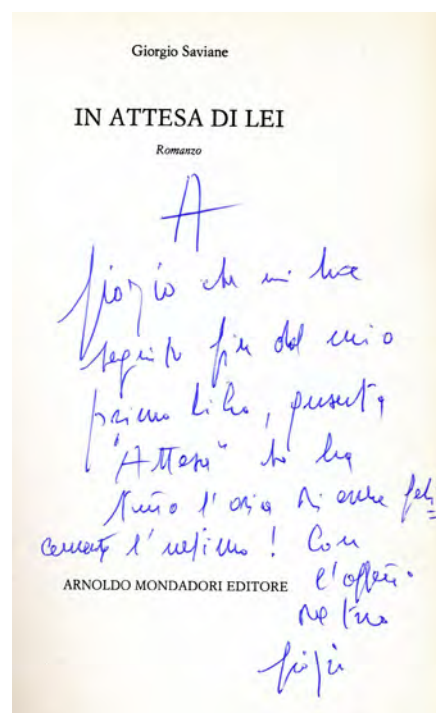 Giorgio Saviane
IN ATTESA DI LEI
Romanzo
A
Giorgio che mi ha
seguito fin dal mio
primo libro, questa
"Attesa" ha
l'aria di essere feli=
cemente l'ultimo! Con
ARNOLDO MONDADORI EDITORE l'affetto
del tuo
Giorgio